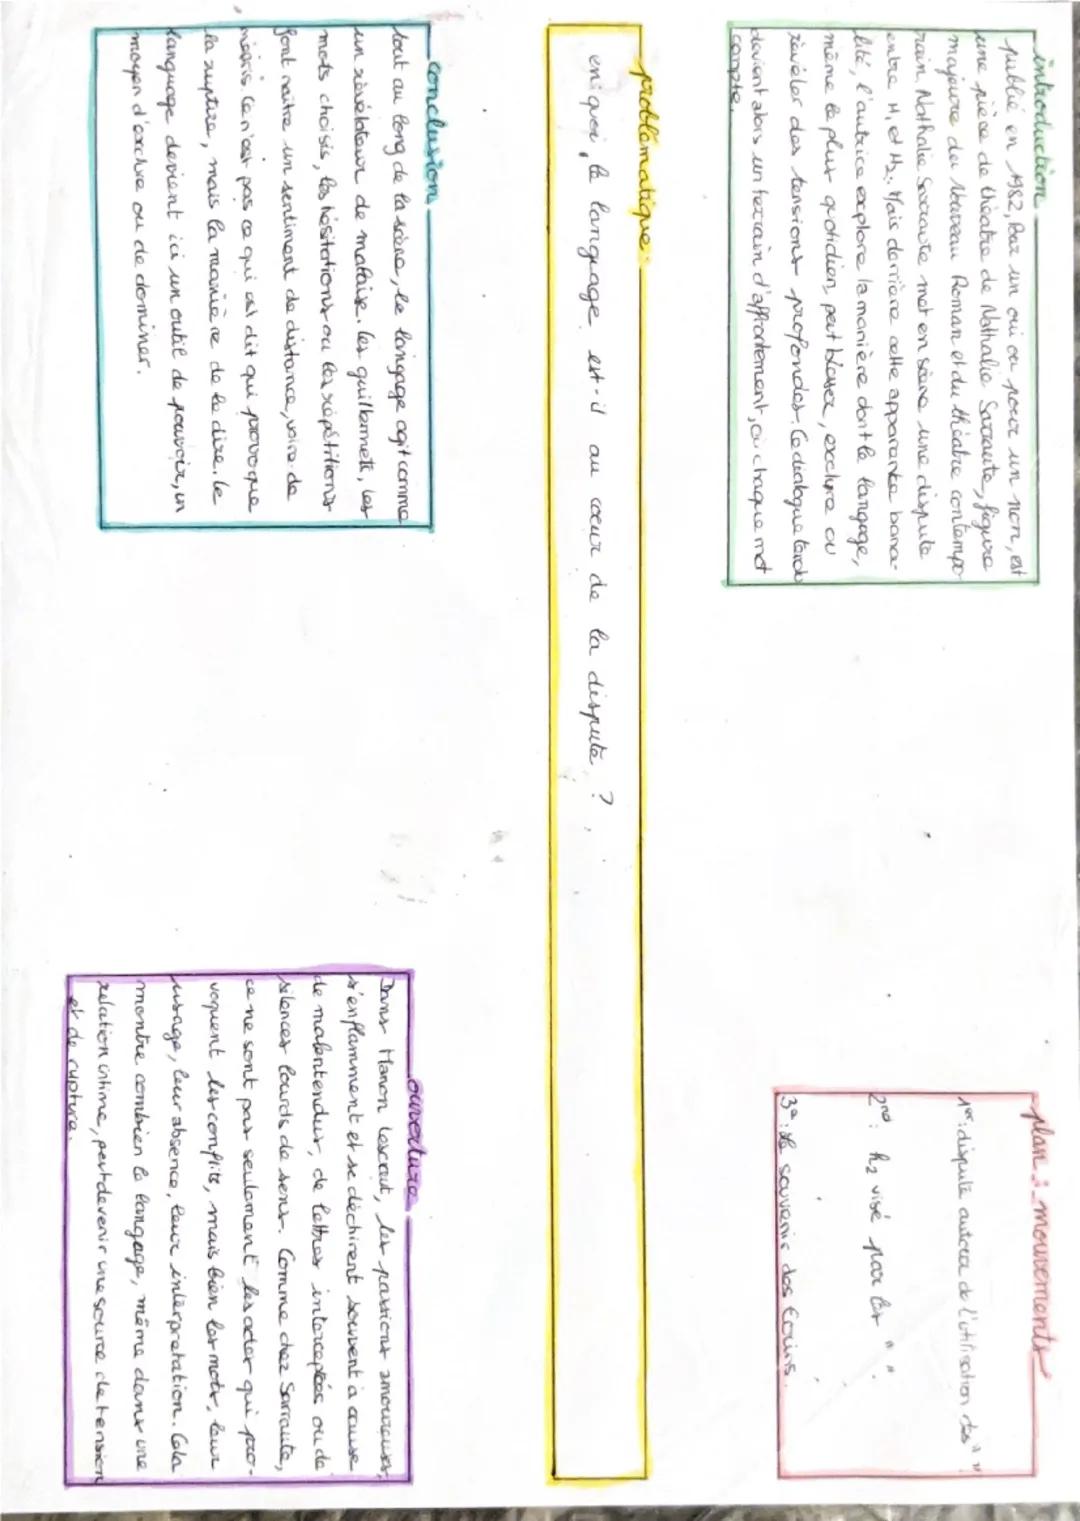 introduction
publié en 1982, Pour un oui ou pour un non, est
une pièce de théatre de Nathalie Sarraute, figure
majeure du Nouveau Roman et du théatre contempo-
rain. Nathalie Sarraute met en scène une dispute
entre H1 et H2. Mais derrière cette apparente bana-
lité, l'autrice explore la manière dont le langage,
même le plus quotidien, peut blesser, exclure ou
révéler des tensions profondes. Ce dialogue tendu
devient alors un terrain d'affrontement, où chaque mot
compte.
plan : mouvements
1er : dispute autour de l'utilisation des " "
2nd : h2 visé par les " ".
3e : le souvenir des Ecrins.
problématique :
en quoi, le language est-il au cœur de la dispute ?
conclusion
tout au long de la scène, le langage agit comme
un révélateur de malaise. les guillemets, les
mots choisis, les hésitations ou les répétitions
font naître un sentiment de distance, voire de
mépris. Ce n'est pas ce qui est dit qui provoque
la rupture, mais la manière de le dire. le
language devient ici un outil de pouvoir, un
moyen d'exclure ou de dominer.
ouverture
Dans Manon Lescaut, les passions amoureuses,
s'enflamment et se déchirent souvent à cause
de malentendus, de lettres interceptées ou de
silences lourds de sens. Comme chez Sarraute,
ce ne sont pas seulement les actes qui pro-
voquent les conflits, mais bien les mots, leur
usage, leur absence, leur interprétation. Cela
montre combien le langage, même dans une
relation intime, peut devenir une source de tension
et de rupture.